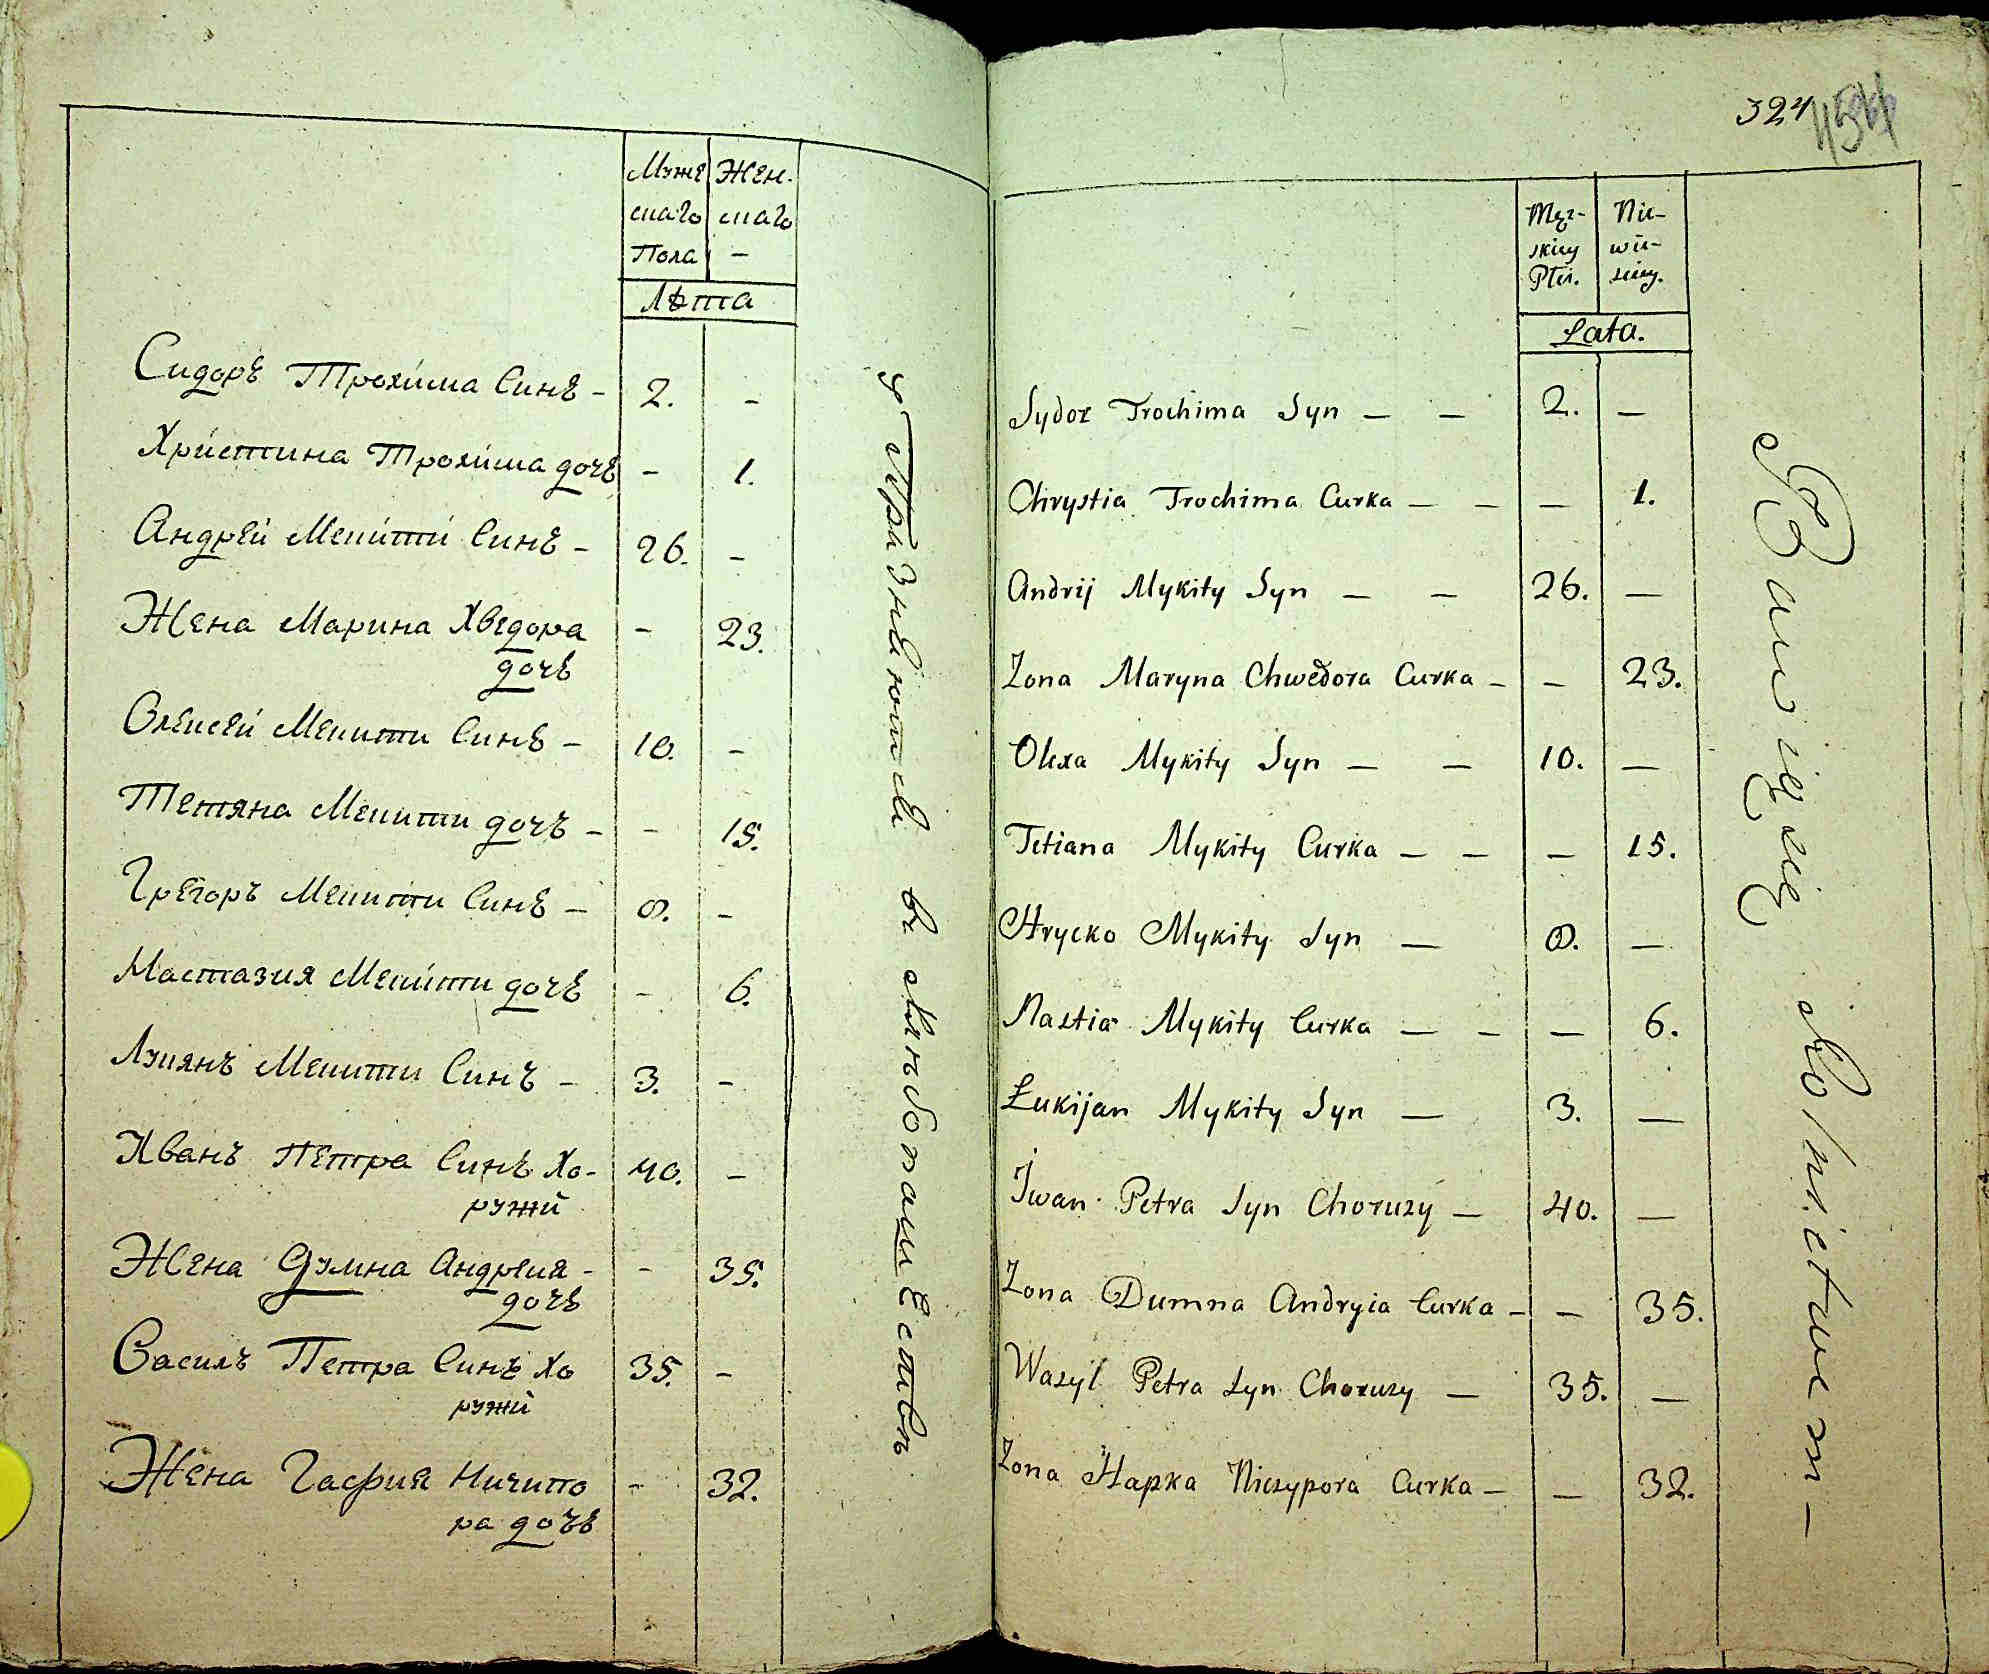 Муже Жен-
скаго скаго
Пола -
Лѣта
Сидоръ Трохима Синъ - 2. -
Христина Трохима дочъ - 1.
Андрей Мекити Синъ - 26. -
Жена Марина Хведора - 23.
дочъ
Олексей Мекити Синъ - 10. -
Тетяна Мекити дочъ - - 15.
Грегоръ Мекити Синъ - 8. -
Настазия Мекити дочъ - 6.
Лукянъ Мекити Синъ - 3. -
Иванъ Петра Синъ Хо- 40. -
ружи
Жена Думна Андрея - - 35.
дочъ
Василъ Петра Синъ Хо 35. -
ружи
Жена Гасфия Ничипо - 32.
ра дочъ
въ
324
Męz- Nie-
skiey wie-
Płci. sciey.
Lata.
Sydor Trochima Syn — — 2. —
Chrystia Trochima Curka — — — 1.
Andrij Mykity Syn — — 26. —
Zona Maryna Chwedora Curka — — 23.
Olexa Mykity Syn — — 10. —
Tetiana Mykity Curka — — — 15.
Hrycko Mykity Syn — 8. —
Nastia Mykity Curka — — — 6.
Łukijan Mykity Syn — 3. —
Iwan Petra Syn Choruzy — 40. —
Zona Dumna Andryia Curka — — 35.
Wasyl Petra Syn Choruzy — 35. —
Zona Hapka Niczypora Curka — — 32.
Bawię się